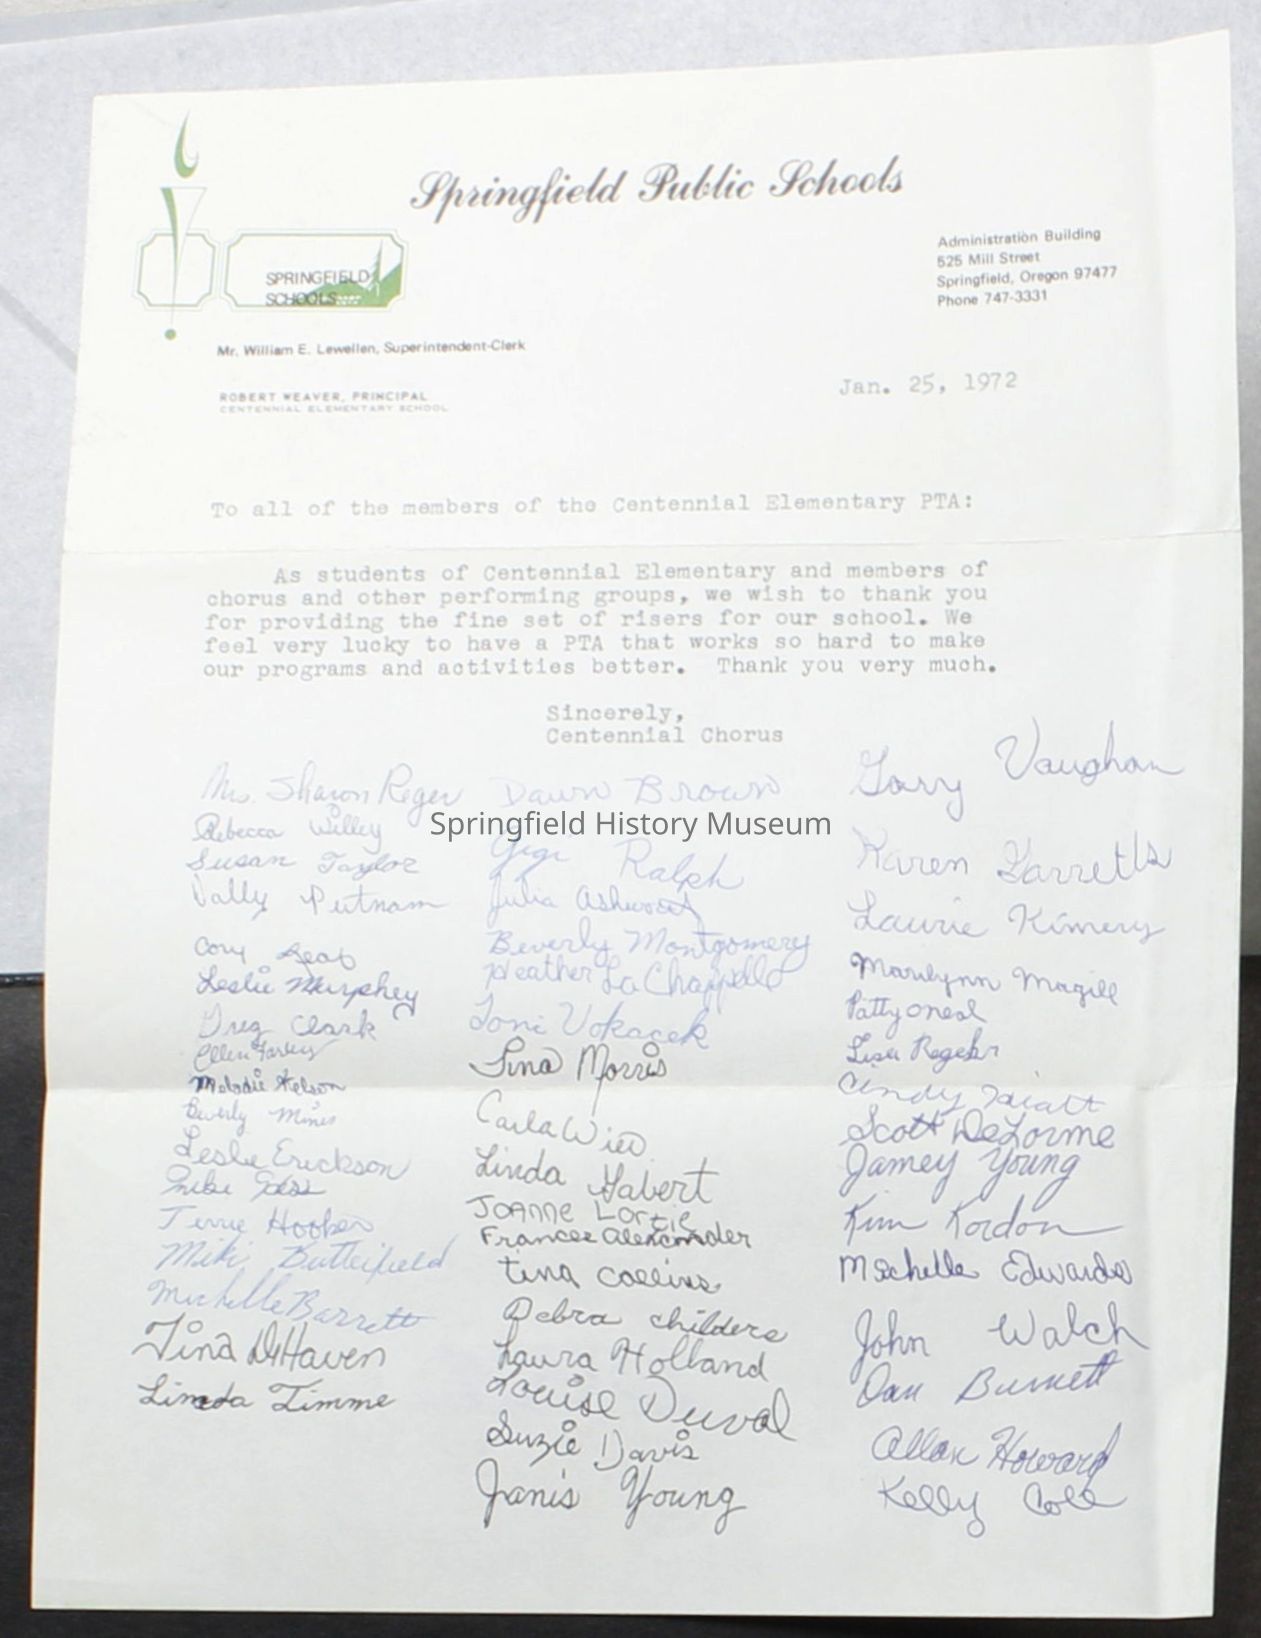 Springfield Public Schools
SPRINGFIELD
SCHOOLS
Administration Building
525 Mill Street
Springfield, Oregon 97477
Phone 747-3331
Mr. William E. Lewellen, Superintendent-Clerk
ROBERT WEAVER, PRINCIPAL
CENTENNIAL ELEMENTARY SCHOOL
Jan. 25, 1972
To all of the members of the Centennial Elementary PTA:
As students of Centennial Elementary and members of
chorus and other performing groups, we wish to thank you
for providing the fine set of risers for our school. We
feel very lucky to have a PTA that works so hard to make
our programs and activities better. Thank you very much.
Sincerely,
Centennial Chorus
Mrs. Sharon Reger
Rebecca Willey
Susan Taylor
Vally Putnam
Cory
Leslie Murphey
Greg Clark
Ellen Farley
Melodie Nelson
Beverly Mines
Leslie Erickson
Terrie Hooker
Miki Butterfield
Michelle Barrett
Tina DeHaven
Linda Timme
Dawn Brown
Springfield History Museum
Gigi Ralph
Julia Ashworth
Beverly Montgomery
Heather LaChappelle
Toni Vokacek
Tina Morris
Carla Wied
Linda Gabert
JoAnne Lortie
Francee Alexander
tina collins
Debra childers
Laura Holland
Louise Duval
Suzie Davis
Janis Young
Gary Vaughan
Karen Garretts
Laurie Kimery
Marilynn Magill
Patty oneal
Lisa Regehr
Cindy Hiatt
Scott DeLorme
Jamey Young
Kim Kordon
Michelle Edwards
John Walch
Dan Burnett
Allan Howard
Kelly Cole